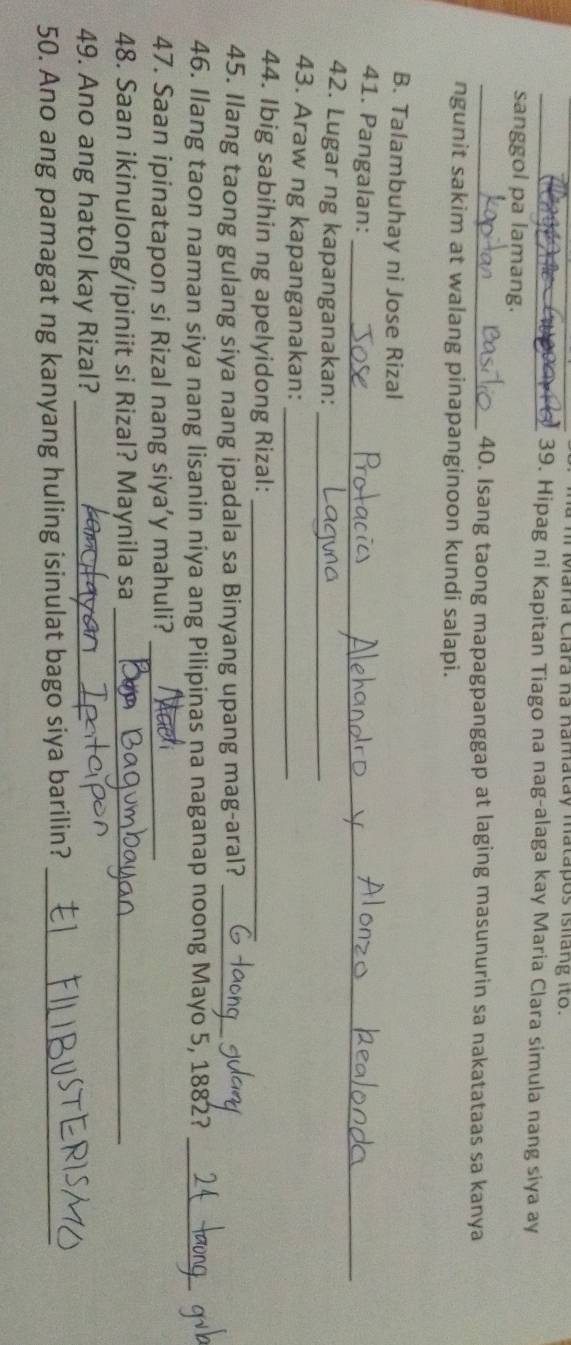 Maria Clara na namatay matapos isilang ito.
39. Hipag ni Kapitan Tiago na nag-alaga kay Maria Clara simula nang siya ay
sanggol pa lamang.
kapitan Basilio 40. Isang taong mapagpanggap at laging masunurin sa nakatataas sa kanya
ngunit sakim at walang pinapanginoon kundi salapi.
B. Talambuhay ni Jose Rizal
41. Pangalan: Jose Protacio Alehandro y Alonzo Realonda
42. Lugar ng kapanganakan: Laguna
43. Araw ng kapanganakan:
44. Ibig sabihin ng apelyidong Rizal:
45. Ilang taong gulang siya nang ipadala sa Binyang upang mag-aral? 6 taong gulang
46. Ilang taon naman siya nang lisanin niya ang Pilipinas na naganap noong Mayo 5, 1882? 24 taong gula
47. Saan ipinatapon si Rizal nang siya'y mahuli?
48. Saan ikinulong/ipiniit si Rizal? Maynila sa Bagumbayan
49. Ano ang hatol kay Rizal? kamatayan Ipatapon
50. Ano ang pamagat ng kanyang huling isinulat bago siya barilin? El FILIBUSTERISMO